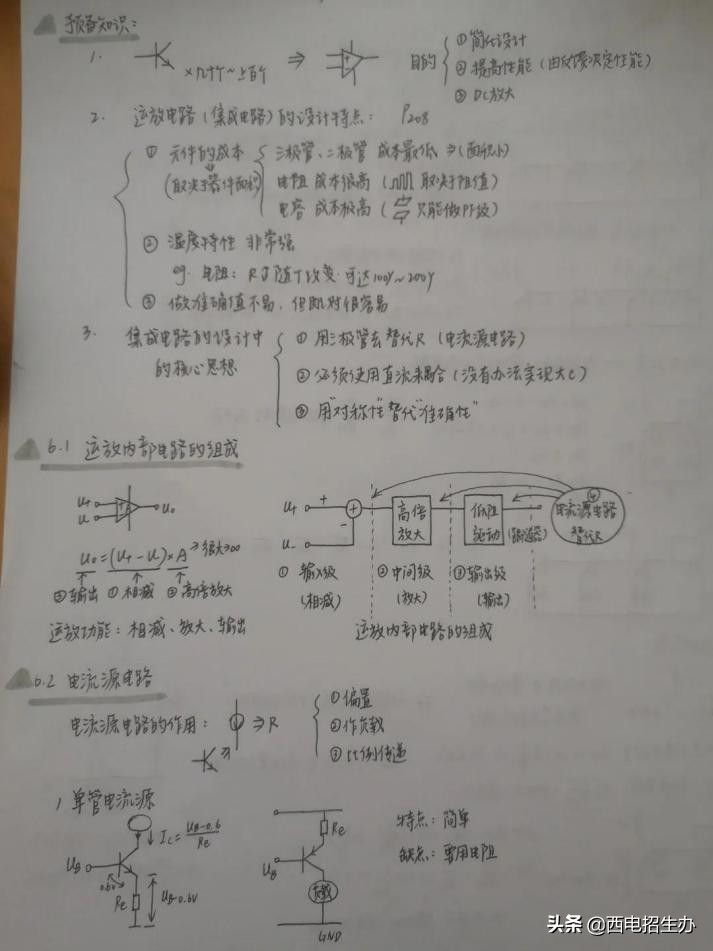 预备知识:
1. ×几十个~上百个 ⇒ 目的 ① 简化设计
② 提高性能 (由反馈决定性能)
③ DC放大
2. 运放电路(集成电路)的设计特点: P208
① 元件的成本 三极管、二极管 成本最低 (面积小)
(取决于器件面积) 电阻 成本很高 ( 取决于阻值)
电容 成本极高 ( 只能做PF级)
② 温度特性 非常强
eg. 电阻: R可随T改变 可达100%~200%
③ 做准确值不易, 但匹对很容易
3. 集成电路的设计中的核心思想 ① 用三极管去替代R (电流源电路)
② 必须使用直流耦合 (没有办法实现大C)
③ 用"对称性"替代"准确性"
6.1 运放内部电路的组成
U+ U- Uo
Uo=(U+-U-)×A
③输出 ①相减 ②高倍放大
运放功能: 相减、放大、输出
U+ + U- - 高倍放大 低阻驱动 (跟随器) ④ 电流源电路替代R
① 输入级 ② 中间级 ③ 输出级
(相减) (放大) (输出)
运放内部电路的组成
6.2 电流源电路
电流源电路的作用: ⇒ R ① 偏置
② 作负载
③ 比例传递
1 单管电流源
Ic=(UB-0.6)/Re
UB 0.6V Re UB-0.6V
Re UB 负载 GND
特点: 简单
缺点: 要用电阻
头条 @西电招生办